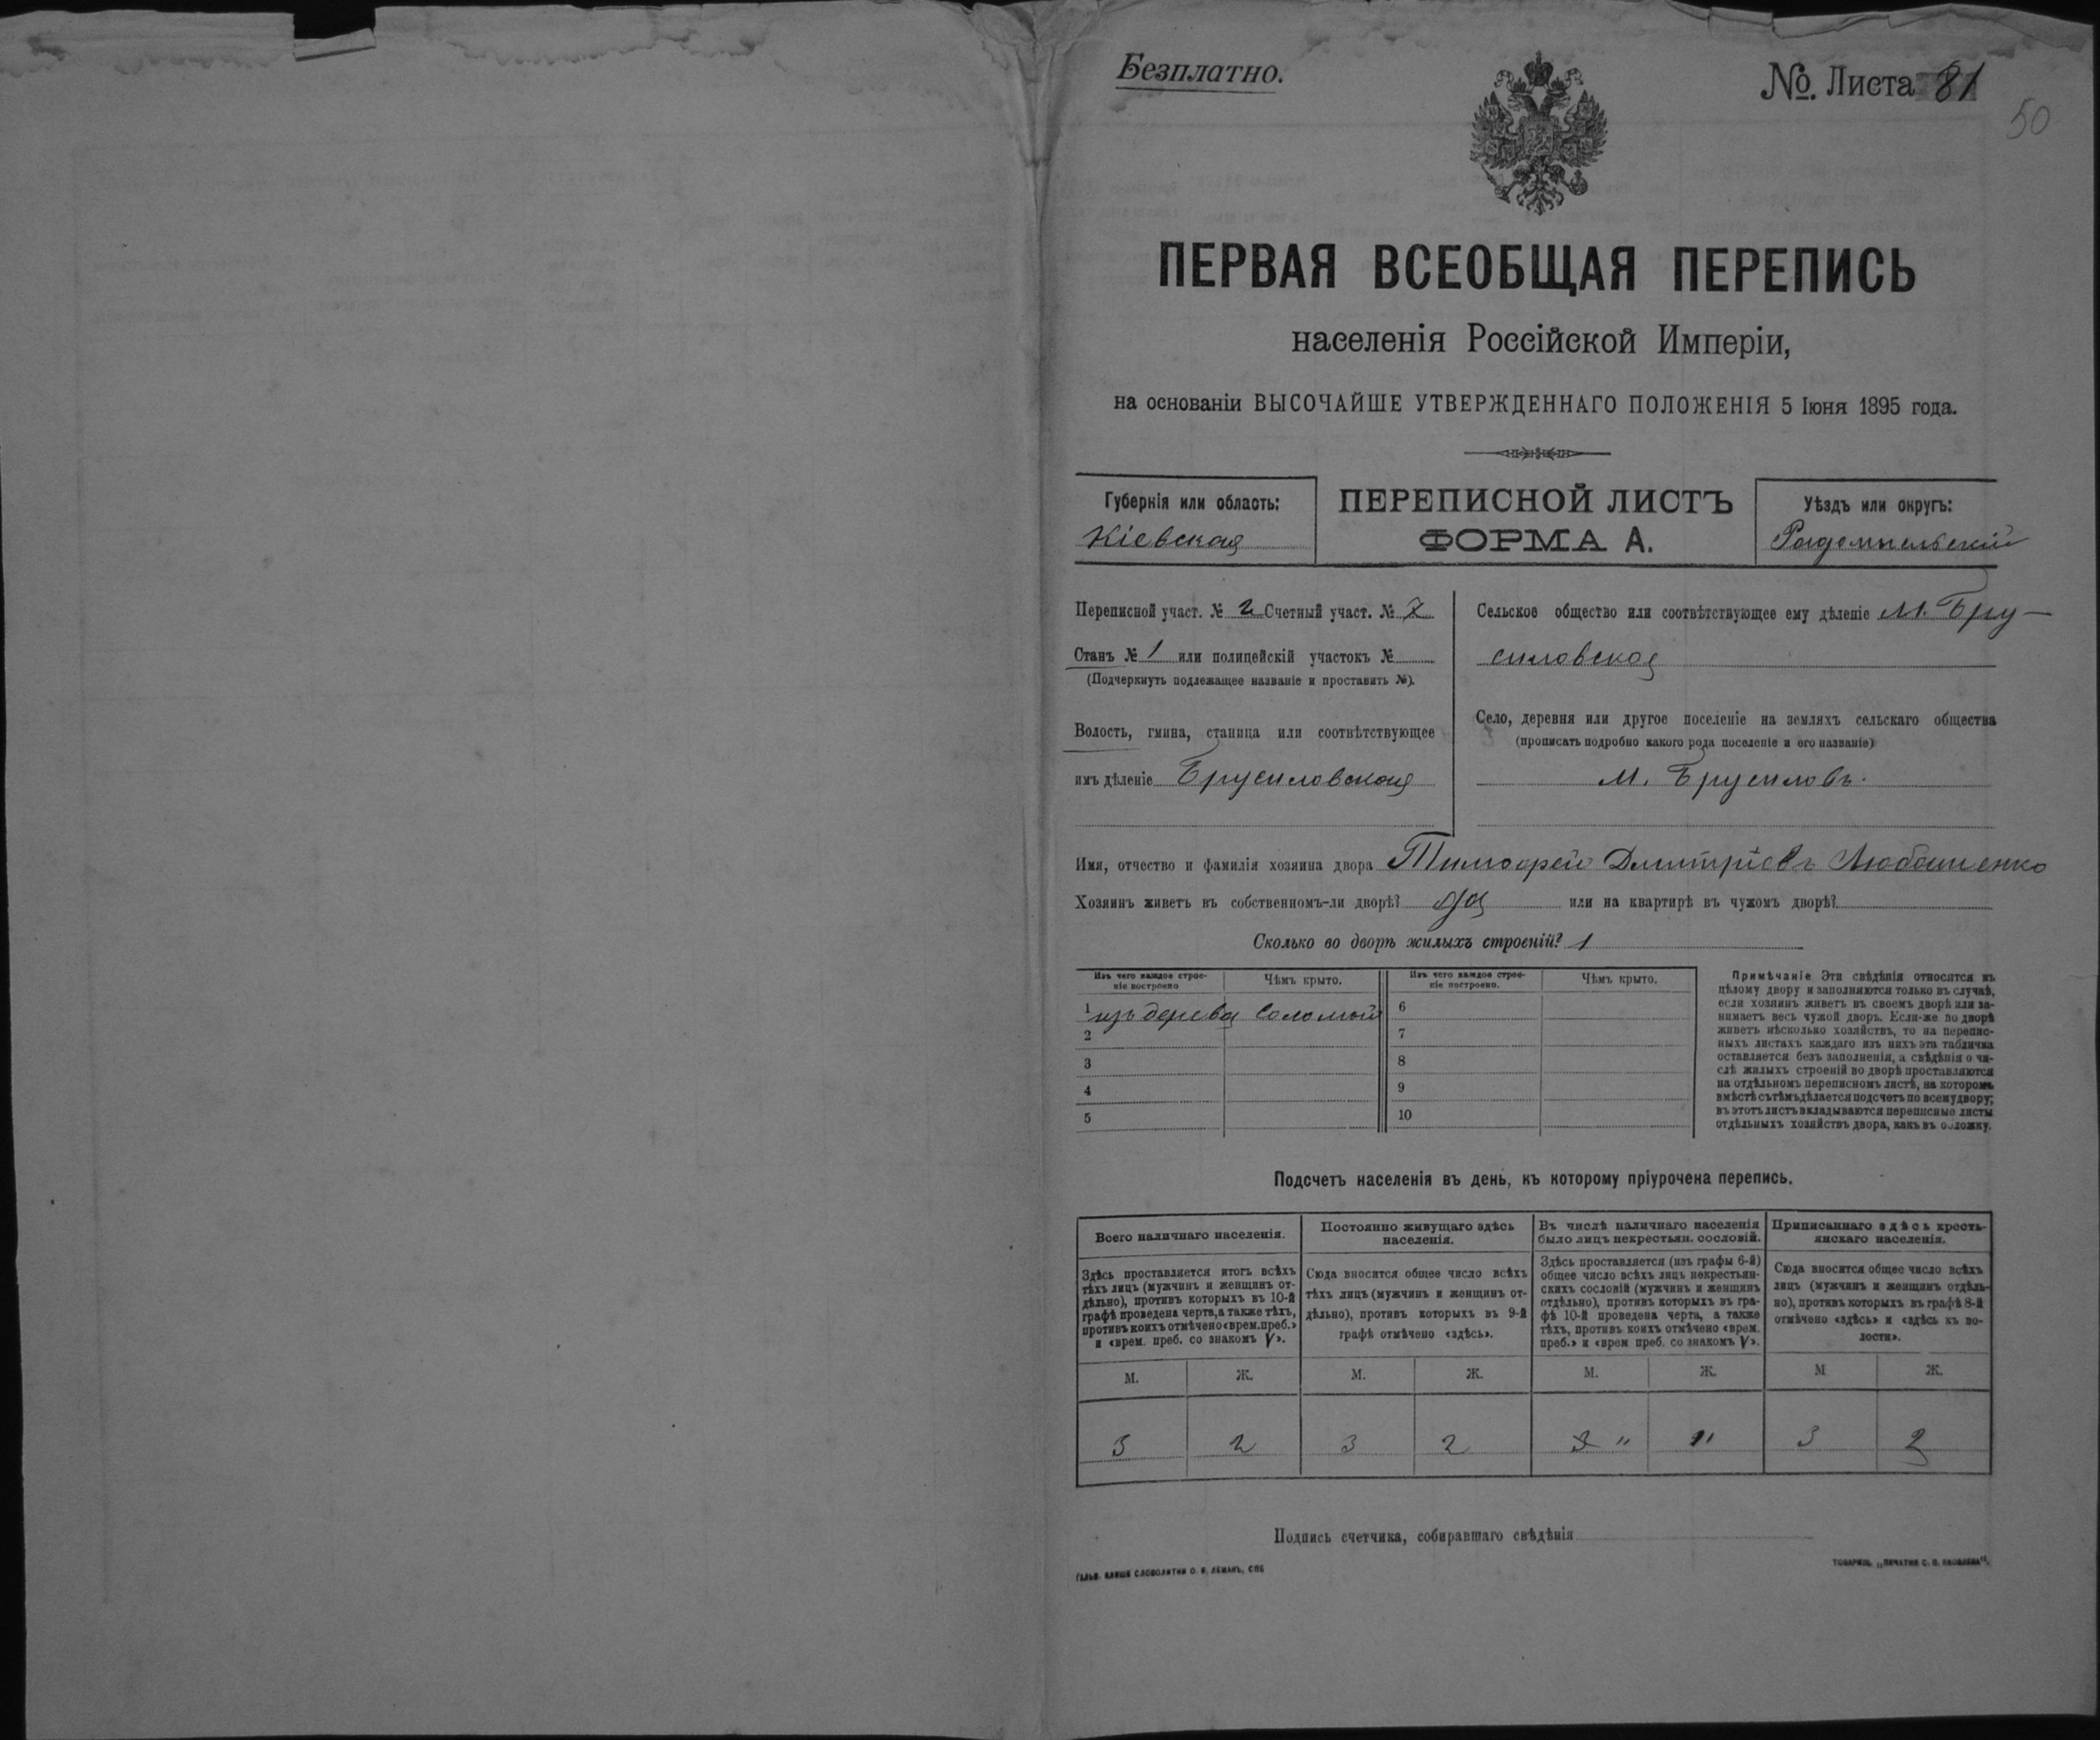 Безплатно.
№ Листа 81
50
ПЕРВАЯ ВСЕОБЩАЯ ПЕРЕПИСЬ
населенія Россійской Имперіи,
на основаніи ВЫСОЧАЙШЕ УТВЕРЖДЕННАГО ПОЛОЖЕНІЯ 5 Іюня 1895 года.
Губернія или область:
Кіевская
ПЕРЕПИСНОЙ ЛИСТЪ
ФОРМА А.
Уѣздъ или округъ:
Радомысльскій
Переписной участ. № 2 Счетный участ. № 7
Станъ № 1 или полицейскій участокъ №
(Подчеркнуть подлежащее названіе и проставить №).
Волость, гмина, станица или соотвѣтствующее
имъ дѣленіе Брусиловская
Сельское общество или соотвѣтствующее ему дѣленіе М. Бру-
силовская
Село, деревня или другое поселеніе на земляхъ сельскаго общества
(прописать подробно какого рода поселеніе и его названіе)
М. Брусиловъ.
Имя, отчество и фамилія хозяина двора Тимофей Дмитріевъ Любашенко
Хозяинъ живетъ въ собственномъ-ли дворѣ? да или на квартирѣ въ чужомъ дворѣ?
Сколько во дворѣ жилыхъ строеній? 1
Изъ чего каждое строе-
ніе построено
Чѣмъ крыто.
1 изъ дерева Соломой
2
3
4
5
Изъ чего каждое строе-
ніе построено.
Чѣмъ крыто.
6
7
8
9
10
Примѣчаніе Эти свѣдѣнія относятся къ
цѣлому двору и заполняются только въ случаѣ,
если хозяинъ живетъ въ своемъ дворѣ или за-
нимаетъ весь чужой дворъ. Если-же во дворѣ
живетъ нѣсколько хозяйствъ, то на перепис-
ныхъ листахъ каждаго изъ нихъ эта табличка
оставляется безъ заполненія, а свѣдѣнія о чи-
слѣ жилыхъ строеній во дворѣ проставляются
на отдѣльномъ переписномъ листѣ, на которомъ
вмѣстѣ съ тѣмъ дѣлается подсчетъ по всему двору;
въ этотъ листъ вкладываются переписные листы
отдѣльныхъ хозяйствъ двора, какъ въ обложку.
Подсчетъ населенія въ день, къ которому пріурочена перепись.
Всего наличнаго населенія.
Здѣсь проставляется итогъ всѣхъ
тѣхъ лицъ (мужчинъ и женщинъ от-
дѣльно), противъ которыхъ въ 10-й
графѣ проведена черта, а также тѣхъ,
противъ коихъ отмѣчено «врем. преб.»
и «врем. преб. со знакомъ V».
М. Ж.
3 2
Постоянно живущаго здѣсь
населенія.
Сюда вносится общее число всѣхъ
тѣхъ лицъ (мужчинъ и женщинъ от-
дѣльно), противъ которыхъ въ 9-й
графѣ отмѣчено «здѣсь».
М. Ж.
3 2
Въ числѣ наличнаго населенія
было лицъ некрестьян. сословій.
Здѣсь проставляется (изъ графы 6-й)
общее число всѣхъ лицъ некрестьян-
скихъ сословій (мужчинъ и женщинъ
отдѣльно), противъ которыхъ въ гра-
фѣ 10-й проведена черта, а также
тѣхъ, противъ коихъ отмѣчено «врем.
преб.» и «врем преб. со знакомъ V».
М. Ж.
" "
Приписаннаго здѣсь кресть-
янскаго населенія.
Сюда вносится общее число всѣхъ
лицъ (мужчинъ и женщинъ отдѣль-
но), противъ которыхъ въ графѣ 8-й
отмѣчено «здѣсь» и «здѣсь къ во-
лости».
М Ж.
3 2
Подпись счетчика, собиравшаго свѣдѣнія
ГАЛЬВ. КЛИШЕ СЛОВОЛИТНИ О. И. ЛЕМАНЪ, СПБ
ТОВАРИЩ. „ПЕЧАТНЯ С. П. ЯКОВЛЕВА“.